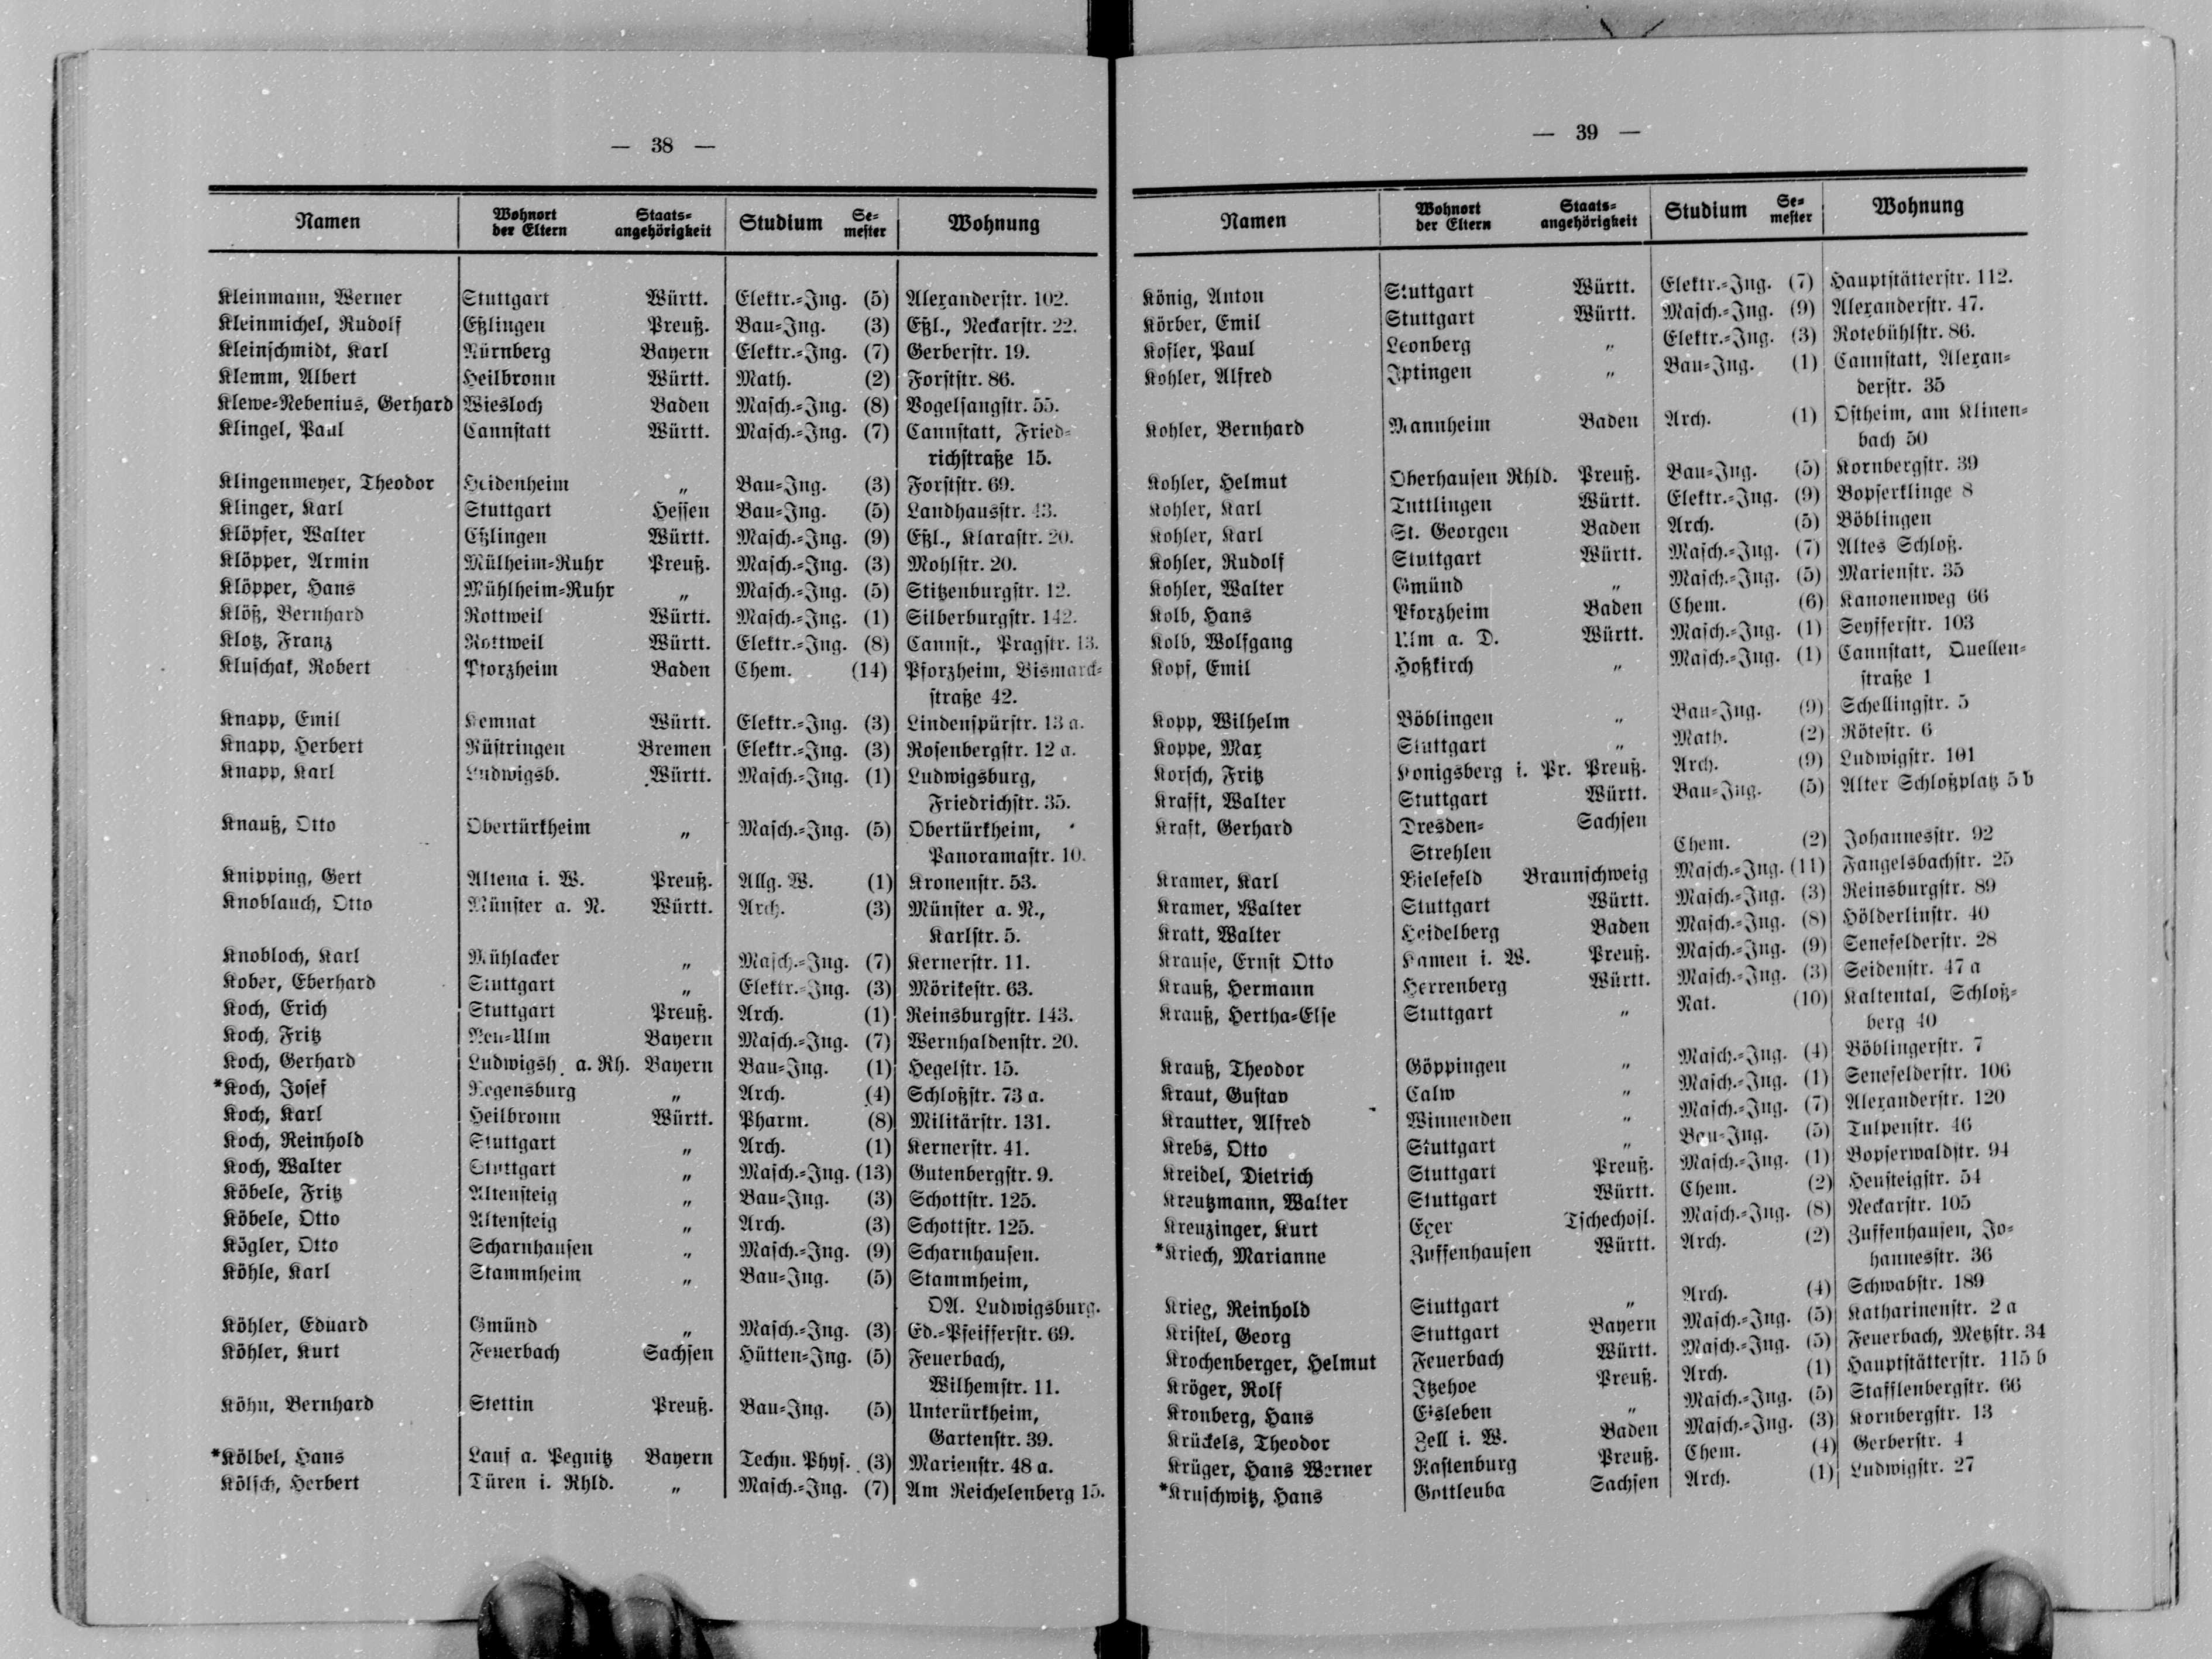 — 38 —
Namen Wohnort der Eltern Staats-angehörigkeit Studium Se-mester Wohnung
Kleinmann, Werner Stuttgart Württ. Elektr.-Ing. (5) Alexanderstr. 102.
Kleinmichel, Rudolf Eßlingen Preuß. Bau-Ing. (3) Eßl., Neckarstr. 22.
Kleinschmidt, Karl Nürnberg Bayern Elektr.-Ing. (7) Gerberstr. 19.
Klemm, Albert Heilbronn Württ. Math. (2) Forststr. 86.
Klewe-Nebenius, Gerhard Wiesloch Baden Masch.-Ing. (8) Vogelsangstr. 55.
Klingel, Paul Cannstatt Württ. Masch.-Ing. (7) Cannstatt, Fried-
richstraße 15.
Klingenmeyer, Theodor Heidenheim „ Bau-Ing. (3) Forststr. 69.
Klinger, Karl Stuttgart Hessen Bau-Ing. (5) Landhausstr. 43.
Klöpfer, Walter Eßlingen Württ. Masch.-Ing. (9) Eßl., Klarastr. 20.
Klöpper, Armin Mülheim-Ruhr Preuß. Masch.-Ing. (3) Mohlstr. 20.
Klöpper, Hans Mühlheim-Ruhr „ Masch.-Ing. (5) Stitzenburgstr. 12.
Klöß, Bernhard Rottweil Württ. Masch.-Ing. (1) Silberburgstr. 142.
Klotz, Franz Rottweil Württ. Elektr.-Ing. (8) Cannst., Pragstr. 13.
Kluschak, Robert Pforzheim Baden Chem. (14) Pforzheim, Bismarck-
straße 42.
Knapp, Emil Kemnat Württ. Elektr.-Ing. (3) Lindenspürstr. 13 a.
Knapp, Herbert Rüstringen Bremen Elektr.-Ing. (3) Rosenbergstr. 12 a.
Knapp, Karl Ludwigsb. Württ. Masch.-Ing. (1) Ludwigsburg,
Friedrichstr. 35.
Knauß, Otto Obertürkheim „ Masch.-Ing. (5) Obertürkheim,
Panoramastr. 10.
Knipping, Gert Altena i. W. Preuß. Allg. W. (1) Kronenstr. 53.
Knoblauch, Otto Münster a. N. Württ. Arch. (3) Münster a. N.,
Karlstr. 5.
Knobloch, Karl Mühlacker „ Masch.-Ing. (7) Kernerstr. 11.
Kober, Eberhard Stuttgart „ Elektr.-Ing. (3) Mörikestr. 63.
Koch, Erich Stuttgart Preuß. Arch. (1) Reinsburgstr. 143.
Koch, Fritz Neu-Ulm Bayern Masch.-Ing. (7) Wernhaldenstr. 20.
Koch, Gerhard Ludwigsh. a. Rh. Bayern Bau-Ing. (1) Hegelstr. 15.
*Koch, Josef Regensburg „ Arch. (4) Schloßstr. 73 a.
Koch, Karl Heilbronn Württ. Pharm. (8) Militärstr. 131.
Koch, Reinhold Stuttgart „ Arch. (1) Kernerstr. 41.
Koch, Walter Stuttgart „ Masch.-Ing. (13) Gutenbergstr. 9.
Köbele, Fritz Altensteig „ Bau-Ing. (3) Schottstr. 125.
Köbele, Otto Altensteig „ Arch. (3) Schottstr. 125.
Kögler, Otto Scharnhausen „ Masch.-Ing. (9) Scharnhausen.
Köhle, Karl Stammheim „ Bau-Ing. (5) Stammheim,
OA. Ludwigsburg.
Köhler, Eduard Gmünd „ Masch.-Ing. (3) Ed.-Pfeifferstr. 69.
Köhler, Kurt Feuerbach Sachsen Hütten-Ing. (5) Feuerbach,
Wilhemstr. 11.
Köhn, Bernhard Stettin Preuß. Bau-Ing. (5) Unterürkheim,
Gartenstr. 39.
*Kölbel, Hans Lauf a. Pegnitz Bayern Techn. Phys. (3) Marienstr. 48 a.
Kölsch, Herbert Türen i. Rhld. „ Masch.-Ing. (7) Am Reichelenberg 15.
— 39 —
Namen Wohnort der Eltern Staats-angehörigkeit Studium Se-mester Wohnung
König, Anton Stuttgart Württ. Elektr.-Ing. (7) Hauptstätterstr. 112.
Körber, Emil Stuttgart Württ. Masch.-Ing. (9) Alexanderstr. 47.
Kofler, Paul Leonberg „ Elektr.-Ing. (3) Rotebühlstr. 86.
Kohler, Alfred Iptingen „ Bau-Ing. (1) Cannstatt, Alexan-
derstr. 35
Kohler, Bernhard Mannheim Baden Arch. (1) Ostheim, am Klinen-
bach 50
Kohler, Helmut Oberhausen Rhld. Preuß. Bau-Ing. (5) Kornbergstr. 39
Kohler, Karl Tuttlingen Württ. Elektr.-Ing. (9) Bopserklinge 8
Kohler, Karl St. Georgen Baden Arch. (5) Böblingen
Kohler, Rudolf Stuttgart Württ. Masch.-Ing. (7) Altes Schloß.
Kohler, Walter Gmünd „ Masch.-Ing. (5) Marienstr. 35
Kolb, Hans Pforzheim Baden Chem. (6) Kanonenweg 66
Kolb, Wolfgang Ulm a. D. Württ. Masch.-Ing. (1) Seyfferstr. 103
Kopf, Emil Hoßkirch „ Masch.-Ing. (1) Cannstatt, Quellen-
straße 1
Kopp, Wilhelm Böblingen „ Bau-Ing. (9) Schellingstr. 5
Koppe, Max Stuttgart „ Math. (2) Rötestr. 6
Korsch, Fritz Konigsberg i. Pr. Preuß. Arch. (9) Ludwigstr. 101
Krafft, Walter Stuttgart Württ. Bau-Ing. (5) Alter Schloßplatz 5 b
Kraft, Gerhard Dresden- Sachsen
Strehlen Chem. (2) Johannesstr. 92
Kramer, Karl Bielefeld Braunschweig Masch.-Ing. (11) Fangelsbachstr. 25
Kramer, Walter Stuttgart Württ. Masch.-Ing. (3) Reinsburgstr. 89
Kratt, Walter Heidelberg Baden Masch.-Ing. (8) Hölderlinstr. 40
Krause, Ernst Otto Kamen i. W. Preuß. Masch.-Ing. (9) Senefelderstr. 28
Krauß, Hermann Herrenberg Württ. Masch.-Ing. (3) Seidenstr. 47 a
Krauß, Hertha-Else Stuttgart „ Nat. (10) Kaltental, Schloß-
berg 40
Krauß, Theodor Göppingen „ Masch.-Ing. (4) Böblingerstr. 7
Kraut, Gustav Calw „ Masch.-Ing. (1) Senefelderstr. 106
Krautter, Alfred Winnenden „ Masch.-Ing. (7) Alexanderstr. 120
Krebs, Otto Stuttgart „ Bau-Ing. (5) Tulpenstr. 46
Kreidel, Dietrich Stuttgart Preuß. Masch.-Ing. (1) Bopserwaldstr. 94
Kreutzmann, Walter Stuttgart Württ. Chem. (2) Heusteigstr. 54
Kreuzinger, Kurt Eger Tschechosl. Masch.-Ing. (8) Neckarstr. 105
*Kriech, Marianne Zuffenhausen Württ. Arch. (2) Zuffenhausen, Jo-
hannesstr. 36
Krieg, Reinhold Stuttgart „ Arch. (4) Schwabstr. 189
Kristel, Georg Stuttgart Bayern Masch.-Ing. (5) Katharinenstr. 2 a
Krochenberger, Helmut Feuerbach Württ. Masch.-Ing. (5) Feuerbach, Metzstr. 34
Kröger, Rolf Itzehoe Preuß. Arch. (1) Hauptstätterstr. 115 b
Kronberg, Hans Eisleben „ Masch.-Ing. (5) Stafflenbergstr. 66
Krückels, Theodor Zell i. W. Baden Masch.-Ing. (3) Kornbergstr. 13
Krüger, Hans Werner Rastenburg Preuß. Chem. (4) Gerberstr. 4
*Kruschwitz, Hans Gottleuba Sachsen Arch. (1) Ludwigstr. 27